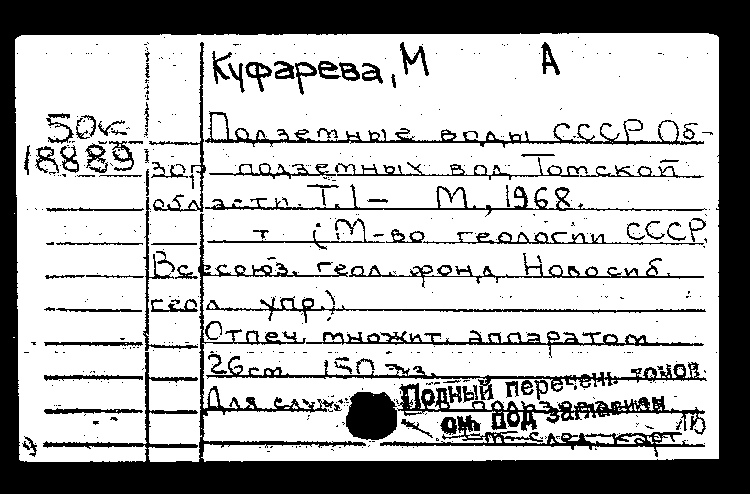 Куфарева, М А
50к
18889
Подземные воды СССР Об-
зор подземных вод Томской
области. Т. 1 — М., 1968.
т (М-во геологии СССР.
Всесоюз. геол. фонд. Новосиб.
геол. упр.).
Отпеч. множит. аппаратом
26 см. 150 экз.
Для служ
Полный перечень томов
см. под заглавием
след. карт.